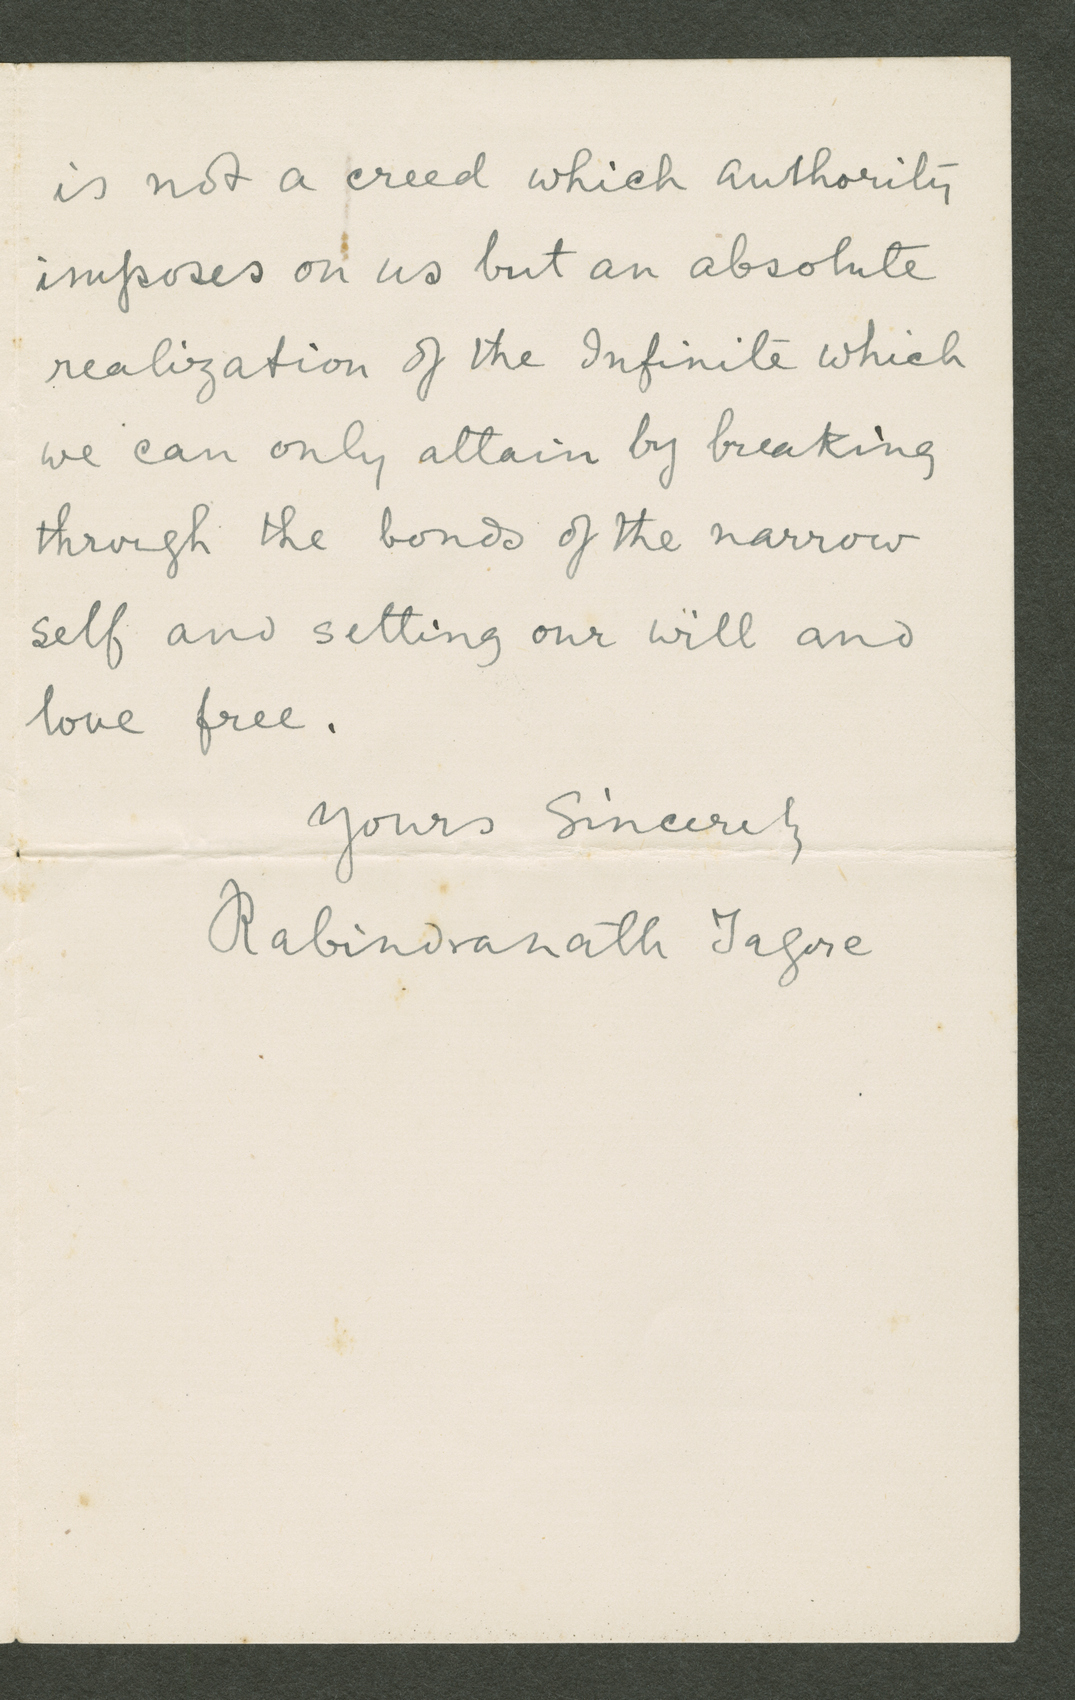 is not a creed which authority
imposes on us but an absolute
realization of the Infinite which
we can only attain by breaking
through the bonds of the narrow
self and setting our will and
love free.
Yours Sincerely
Rabindranath Tagore